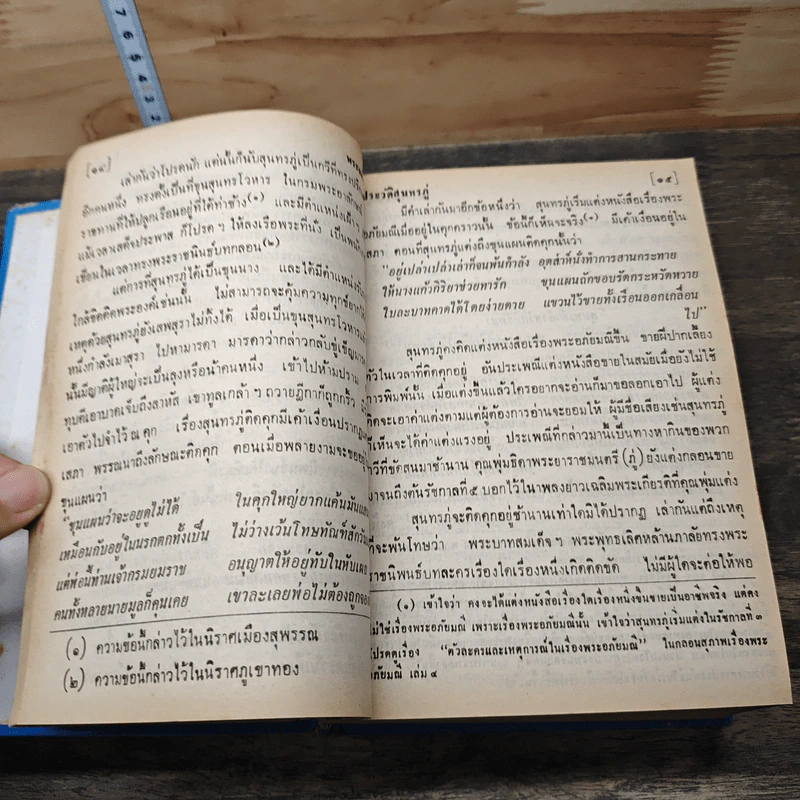 [๑๔]
เล่ากันว่าโปรดนัก แต่นั้นก็นับสุนทรภู่เป็นกวีที่ทรงปรึกษา
อีกคนหนึ่ง ทรงตั้งเป็นที่ขุนสุนทรโวหาร ในกรมพระอาลักษณ์
ราชทานที่ให้ปลูกเรือนอยู่ที่ใต้ท่าช้าง(๑) และมีตำแหน่งเฝ้าฯ
แม้เวลาเสด็จประพาส ก็โปรด ฯ ให้ลงเรือพระที่นั่ง เป็นพนัก
เขียนในเวลาทรงพระราชนิพนธ์บทกลอน(๒)
แต่การที่สุนทรภู่ได้เป็นขุนนาง และได้มีตำแหน่งรับ
ใกล้ชิดติดพระองค์เช่นนั้น ไม่สามารถจะคุ้มความทุกข์ยากได้
เหตุด้วยสุนทรภู่ยังเสพสุราไม่ทิ้งได้ เมื่อเป็นขุนสุนทรโวหาร
หนึ่งกำลังเมาสุรา ไปหามารดา มารดาว่ากล่าวกลับขู่เข็ญมาร
นั้นมีญาติผู้ใหญ่จะเป็นลุงหรือน้าคนหนึ่ง เข้าไปห้ามปราม
ทุบตีเอาบาดเจ็บถึงสาหัส เขาทูลเกล้า ฯ ถวายฎีกาก็ถูกกริ้ว
เอาตัวไปจำไว้ ณ คุก เรื่องสุนทรภู่ติดคุกมีเค้าเงื่อนปรากฏ
เสภา พรรณนาถึงลักษณะติดคุก ตอนเมื่อพลายงามจะขออยู่
ขุนแผนว่า
"ขุนแผนว่าจะอยู่ดูไม่ได้ ในคุกใหญ่ยากแค้นมันแสน
เหมือนกับอยู่ในนรกตกทั้งเป็น ไม่ว่างเว้นโทษทัณฑ์สักวัน
แต่พ่อนี้ท่านเจ้ากรมยมราช อนุญาตให้อยู่ทับในหับเผย
คนทั้งหลายนายมูลก็คุ้นเคย เขาละเลยพ่อไม่ต้องถูกจอง
(๑) ความข้อนี้กล่าวไว้ในนิราศเมืองสุพรรณ
(๒) ความข้อนี้กล่าวไว้ในนิราศภูเขาทอง
ประวัติสุนทรภู่ [๑๕]
มีคำเล่ากันมาอีกข้อหนึ่งว่า สุนทรภู่เริ่มแต่งหนังสือเรื่องพระ
อภัยมณีเมื่ออยู่ในคุกคราวนั้น ข้อนี้ก็เห็นจะจริง(๑) มีเค้าเงื่อนอยู่ใน
เสภา ตอนที่สุนทรภู่แต่งถึงขุนแผนติดคุกนั้นว่า
"อยู่เปล่าเปล่าเล่าก็จนพ้นกำลัง อุตส่าห์นั่งทำการสานกระทาย
ให้นางแก้วกิริยาช่วยทารัก ขุนแผนถักขอบรัดกระหวัดหวาย
ใบละบาทคาดได้โดยง่ายดาย แขวนไว้ขายทั้งเรือนออกเกลื่อน
ไป"
สุนทรภู่คงคิดแต่งหนังสือเรื่องพระอภัยมณีขึ้น ขายฝีปากเลี้ยง
ตัวในเวลาที่ติดคุกอยู่ อันประเพณีแต่งหนังสือขายในสมัยเมื่อยังไม่ใช้
การพิมพ์นั้น เมื่อแต่งขึ้นแล้วใครอยากจะอ่านก็มาขอลอกเอาไป ผู้แต่ง
คิดจะเอาค่าแต่งตามแต่ผู้ต้องการอ่านจะยอมให้ ผู้มีชื่อเสียงเช่นสุนทรภู่
ก็เห็นจะได้ค่าแต่งแรงอยู่ ประเพณีที่กล่าวมานี้เป็นทางหากินของพวก
กวีที่ขัดสนมาช้านาน คุณพุ่มธิดาพระยาราชมนตรี (ภู่) ยังแต่งกลอนขาย
มาจนถึงต้นรัชกาลที่ ๕ บอกไว้ในเพลงยาวเฉลิมพระเกียรติที่คุณพุ่มแต่ง
สุนทรภู่จะติดคุกอยู่ช้านานเท่าใดมิได้ปรากฏ เล่ากันแต่ถึงเหตุ
ที่จะพ้นโทษว่า พระบาทสมเด็จ ฯ พระพุทธเลิศหล้านภาลัยทรงพระ
ราชนิพนธ์บทละครเรื่องใดเรื่องหนึ่งเกิดติดขัด ไม่มีผู้ใดจะต่อให้พอ
(๑) เข้าใจว่า คงจะได้แต่งหนังสือเรื่องใดเรื่องหนึ่งขึ้นขายเป็นอาชีพจริง แต่คง
ไม่ใช่เรื่องพระอภัยมณี เพราะเรื่องพระอภัยมณีนั้น เข้าใจว่าสุนทรภู่เริ่มแต่งในรัชกาลที่ ๓
โปรดดูเรื่อง "ตัวละครและเหตุการณ์ในเรื่องพระอภัยมณี" ในกลอนสุภาพเรื่องพระ
อภัยมณี เล่ม ๔